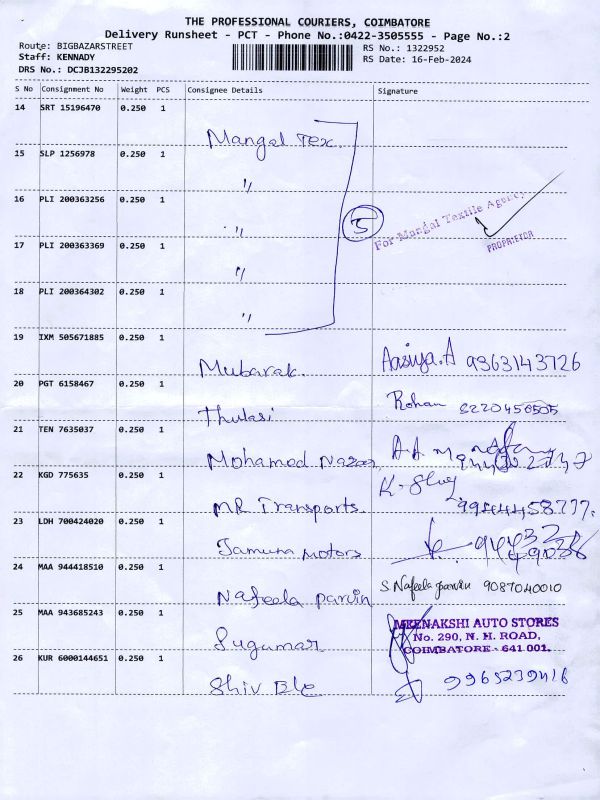 THE PROFESSIONAL COURIERS, COIMBATORE
Delivery Runsheet - PCT - Phone No.:0422-3505555 - Page No.:2
Route: BIGBAZARSTREET RS No.: 1322952
Staff: KENNADY RS Date: 16-Feb-2024
DRS No.: DCJB132295202
S No Consignment No Weight PCS Consignee Details Signature
14 SRT 15196470 0.250 1
Mangal Tex.
15 SLP 1256978 0.250 1
"
16 PLI 200363256 0.250 1
" 5 For Mangal Textile Agency
PROPRIETOR
17 PLI 200363369 0.250 1
"
18 PLI 200364302 0.250 1
"
19 IXM 505671885 0.250 1
Mubarak. Aasiya.A 9363143726
20 PGT 6158467 0.250 1
Thulasi Rohan 8220456505
21 TEN 7635037 0.250 1
Mohamed Nazar A.A
22 KGD 775635 0.250 1
MR Transports. 9944458777.
23 LDH 700424020 0.250 1
Jamuna Motors
24 MAA 944418510 0.250 1
Nafeela parvin S Nafeela parvin 9087040010
25 MAA 943685243 0.250 1
Sugumar
MEENAKSHI AUTO STORES
No. 290, N. H. ROAD,
COIMBATORE - 641 001.
26 KUR 6000144651 0.250 1
Shiv Ele 9965239416